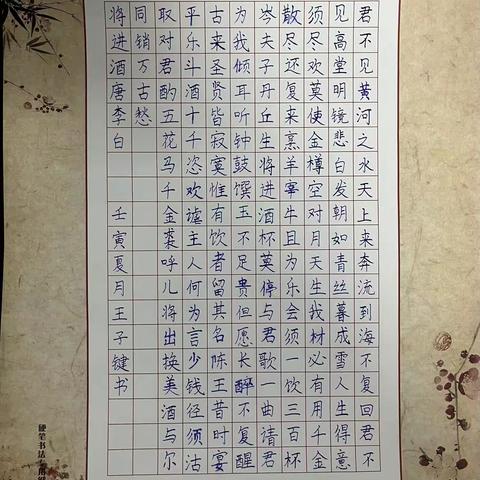 君不见黄河之水天上来奔流到海不复回君不
见高堂明镜悲白发朝如青丝暮成雪人生得意
须尽欢莫使金樽空对月天生我材必有用千金
散尽还复来烹羊宰牛且为乐会须一饮三百杯
岑夫子丹丘生将进酒杯莫停与君歌一曲请君
为我倾耳听钟鼓馔玉不足贵但愿长醉不复醒
古来圣贤皆寂寞惟有饮者留其名陈王昔时宴
平乐斗酒十千恣欢谑主人何为言少钱径须沽
取对君酌五花马千金裘呼儿将出换美酒与尔
同销万古愁
将进酒唐李白 壬寅夏月王子键书
硬笔书法